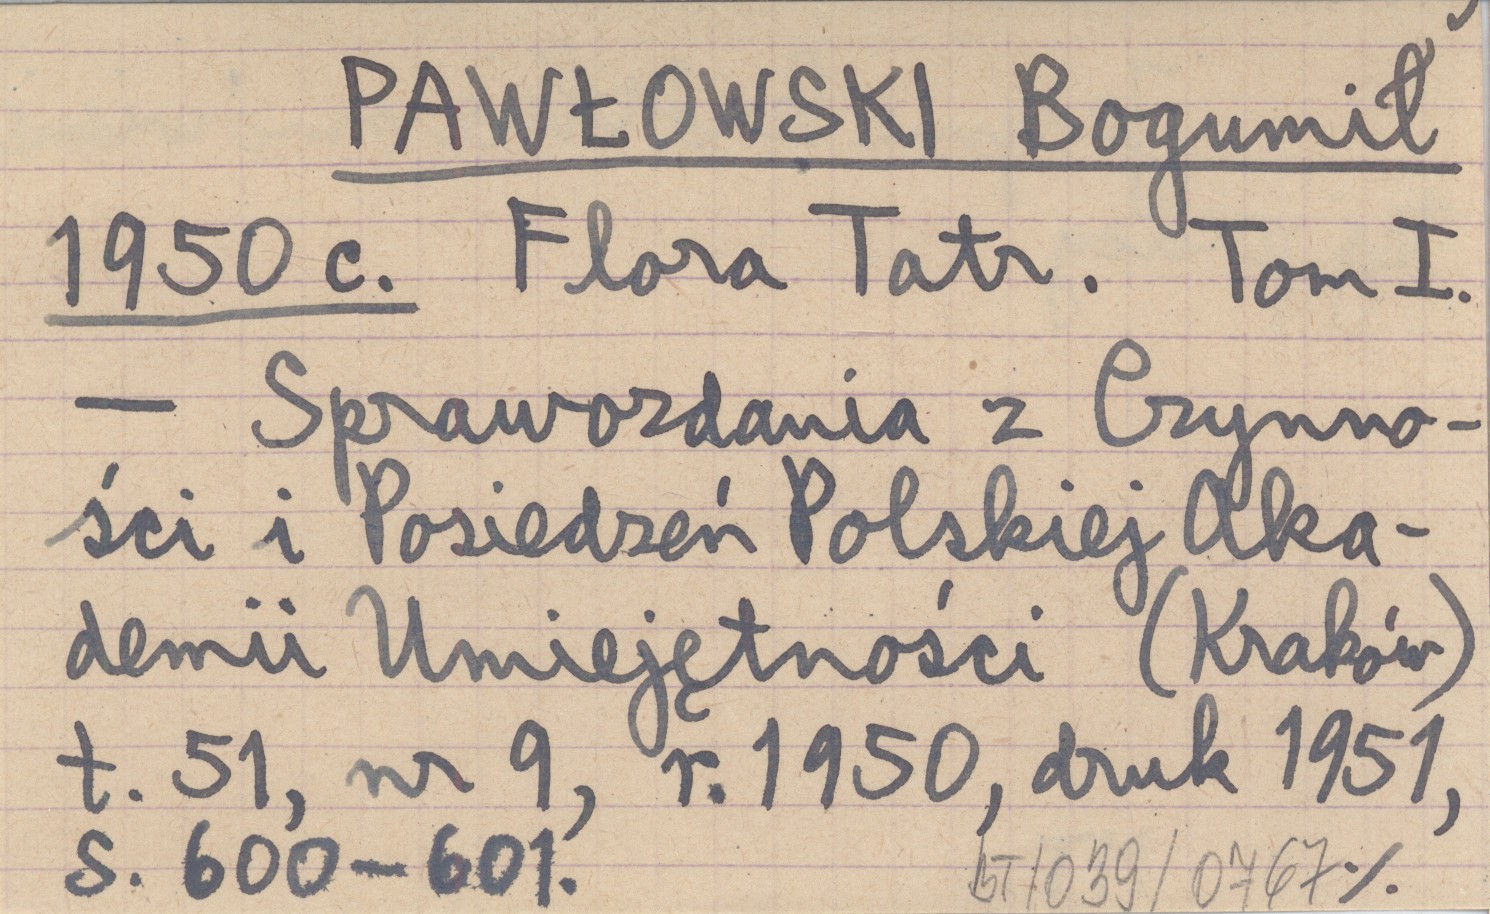 PAWŁOWSKI Bogumił
1950 c. Flora Tatr. Tom I.
— Sprawozdania z Czynno-
ści i Posiedzeń Polskiej Aka-
demii Umiejętności (Kraków)
t. 51, nr 9, r. 1950, druk 1951,
s. 600-601.
BT/039/0767 ·/.